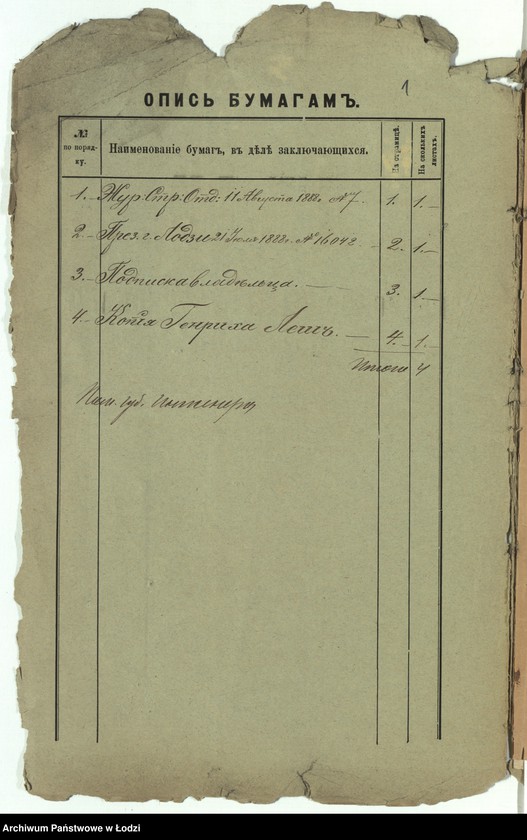 1
ОПИСЬ БУМАГАМЪ.
№ по порядку. Наименованіе бумагъ, въ дѣлѣ заключающихся. На страницѣ. На сколькихъ листахъ.
1. Жур: Стр: Отд: 11 Августа 1888г. №7. 1. 1.
2. През. г. Лодзи 21 Іюля 1888г. № 16042 2. 1.
3. Подписка владѣльца. 3. 1.
4. Копія Генриха 4. 1.
Итого 4
губ. Инженера
Archiwum Państwowe w Łodzi